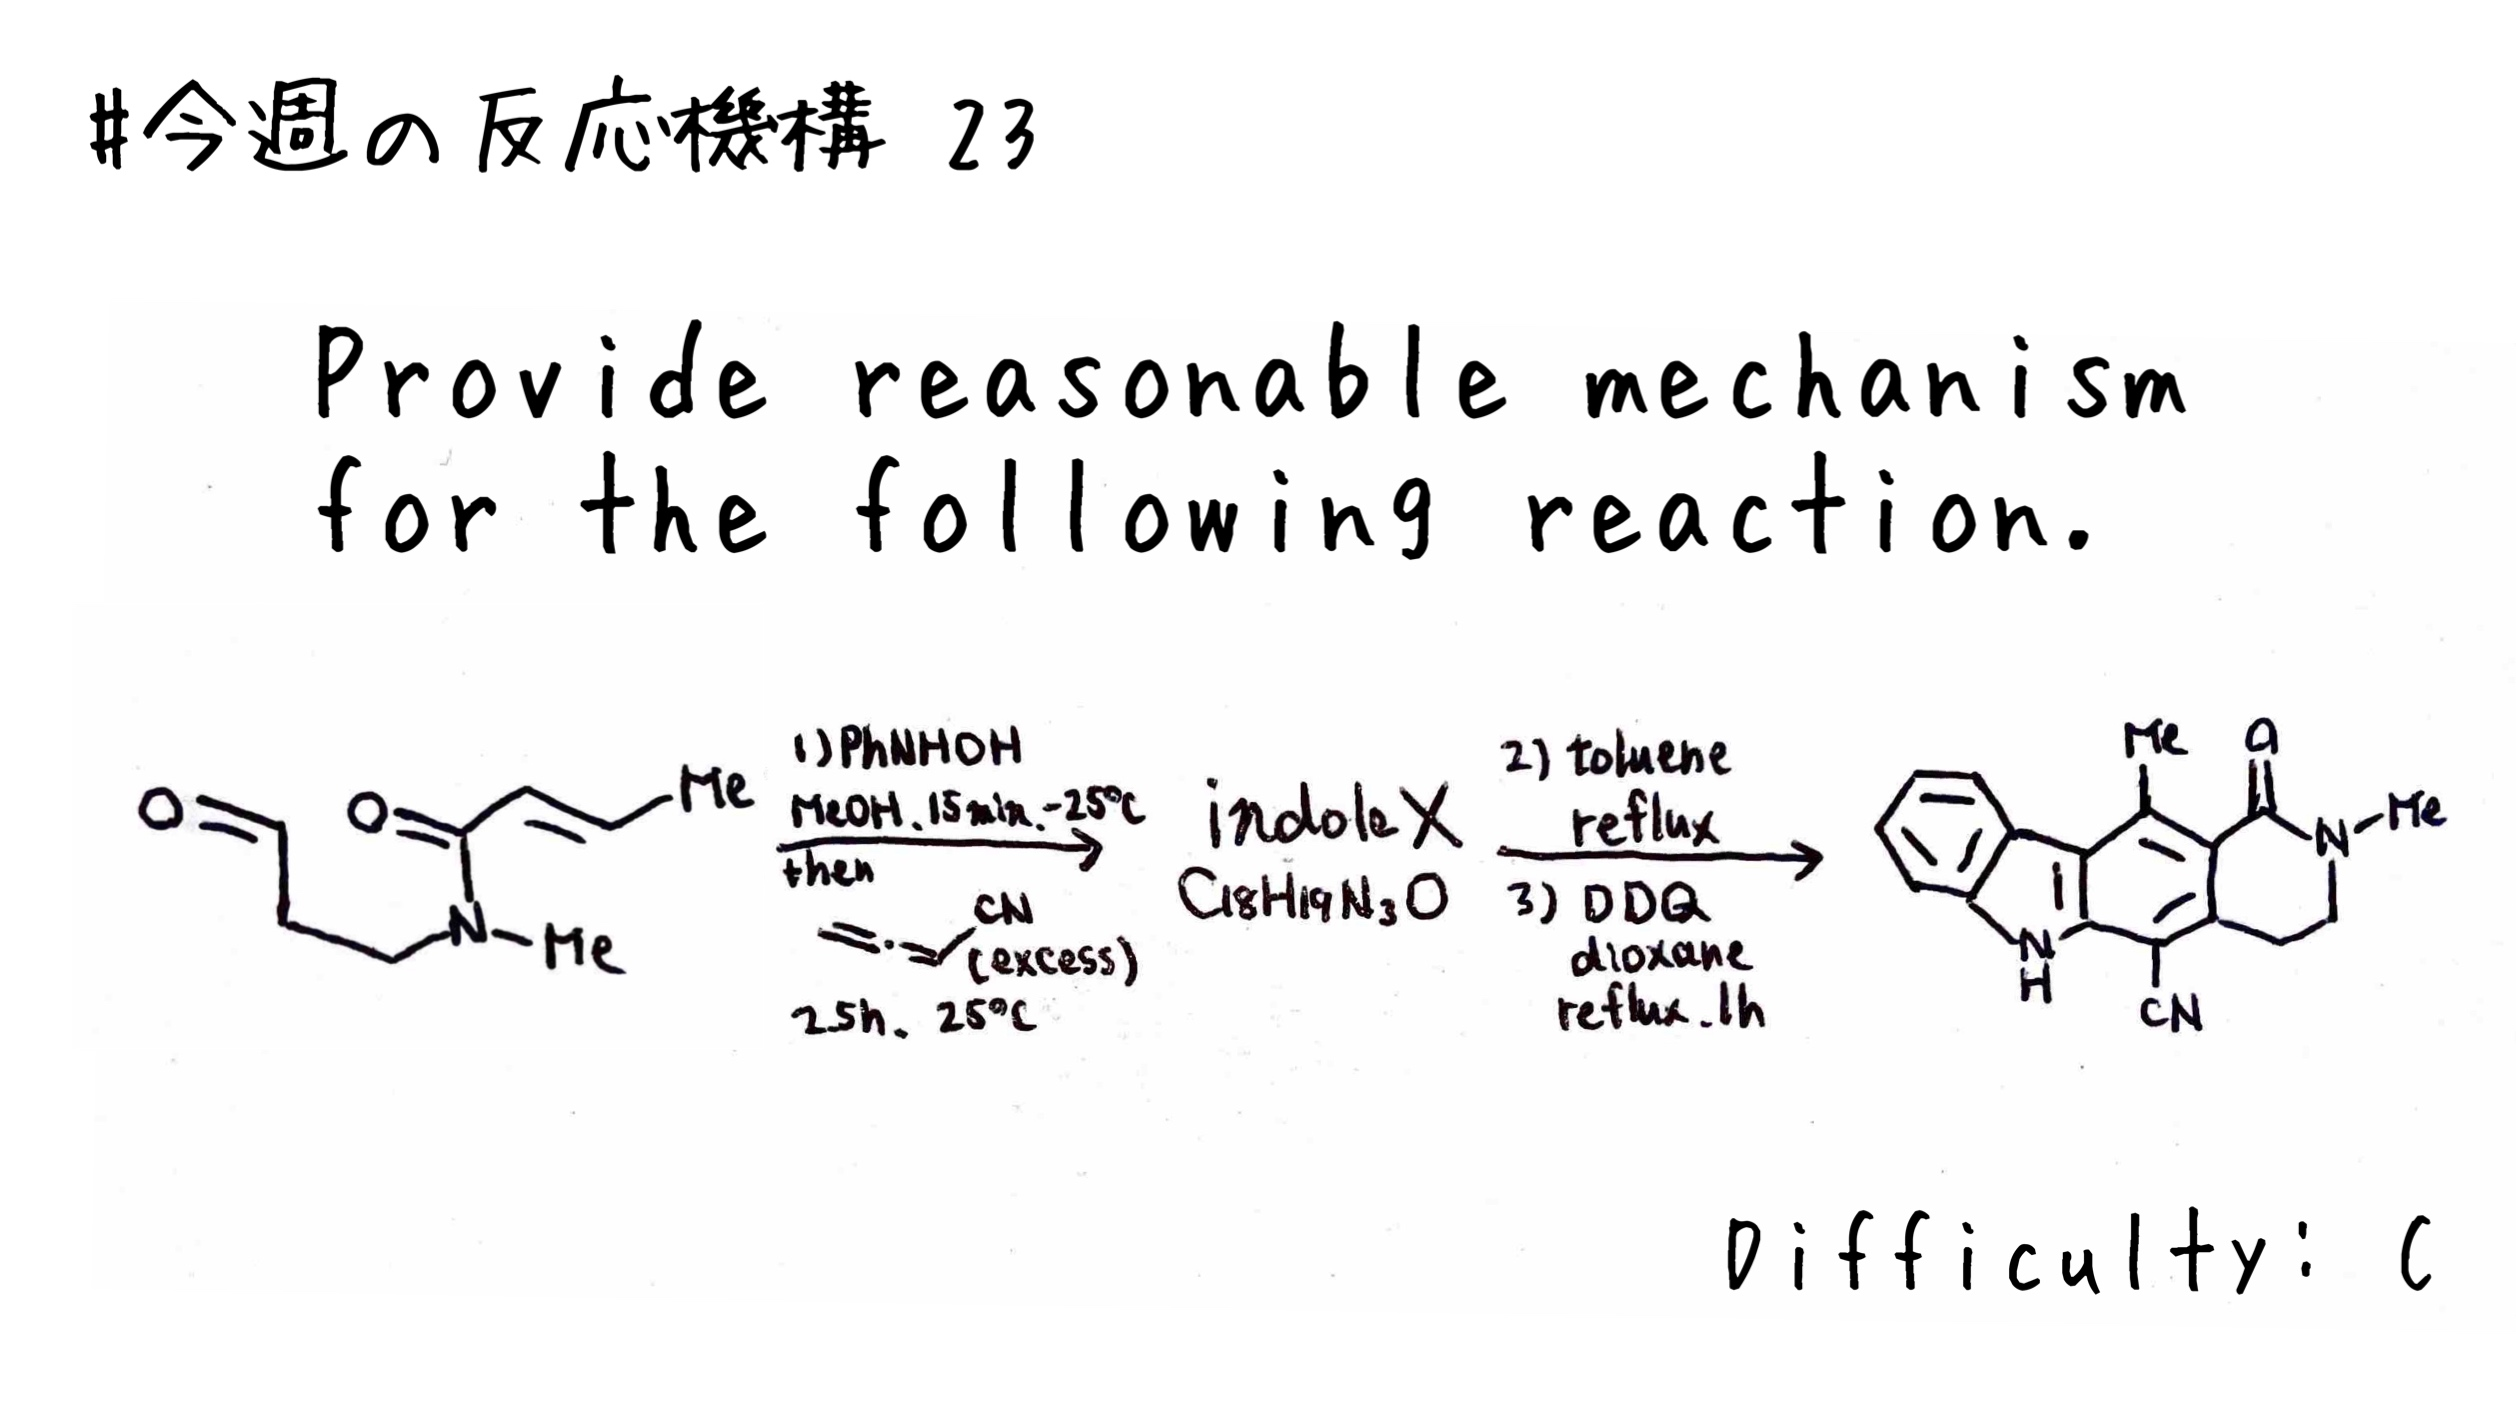 #今週の反応機構 23
Provide reasonable mechanism
for the following reaction.
O
O
Me
N-Me
1) PhNHOH
MeOH. 15min. -25°C
then
CN
(excess)
25h. 25°C
indole X
C18H19N3O
2) toluene
reflux
3) DDQ
dioxane
reflux. 1h
Me
O
N-Me
N
H
CN
Difficulty: C